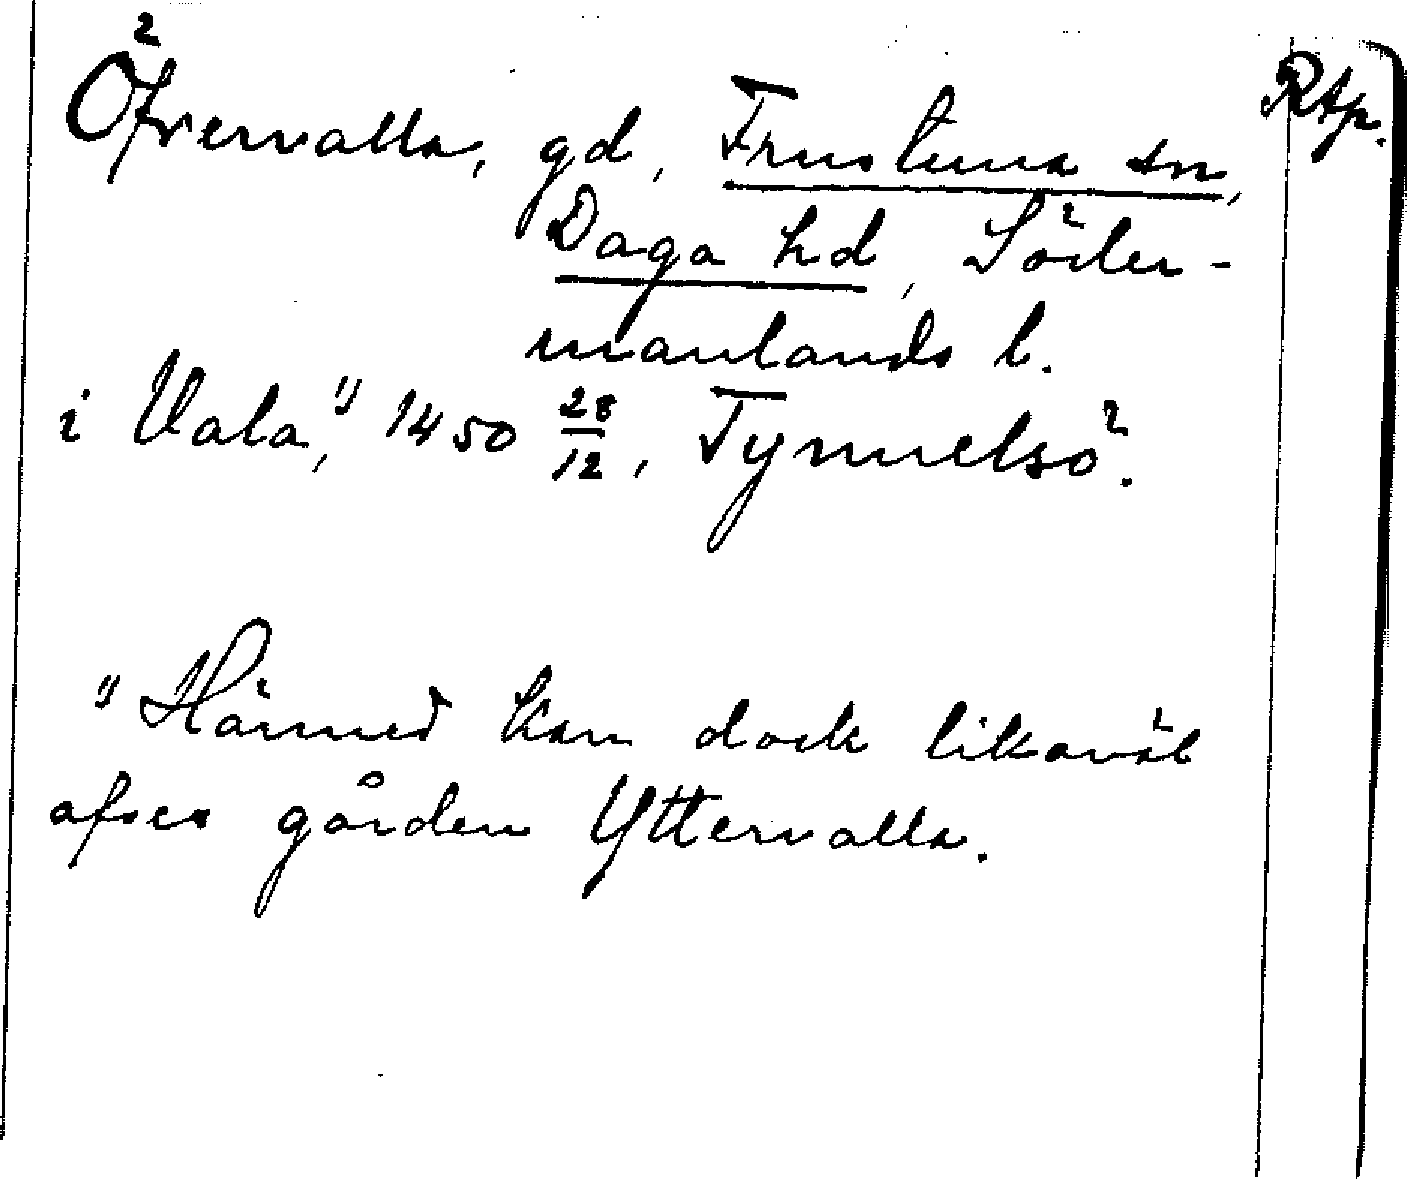 Öfvervalla, gd, Frustuna sn, Rtp.
Daga hd, Söder-
manlands l.
i Vala," 1450 28/12, Tynnelsö.
" Härmed kan dock likaväl
afses gården Yttervalla.